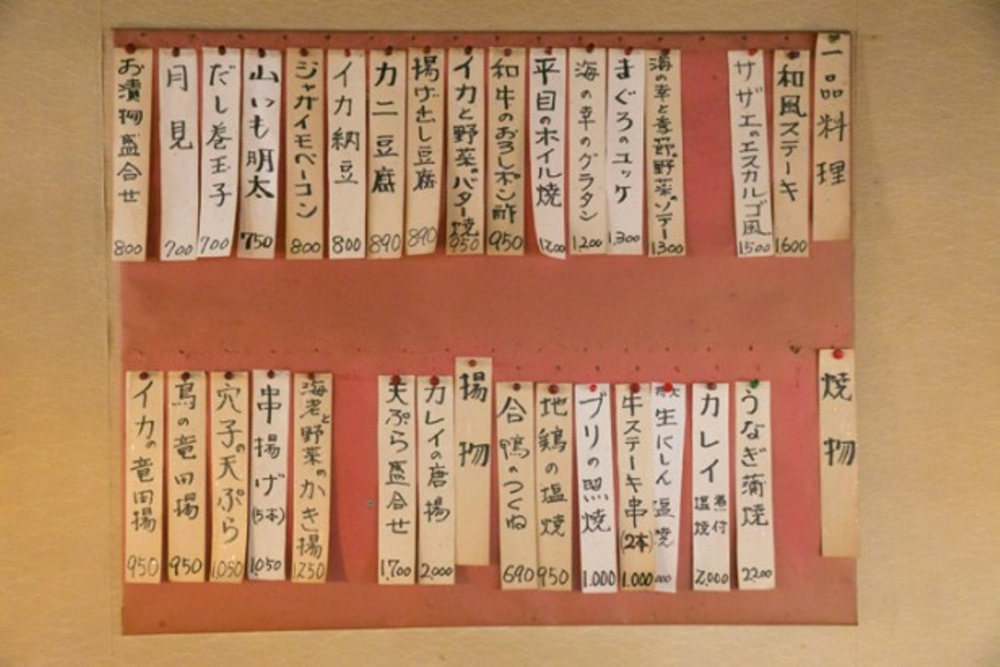 一品料理
和風ステーキ 1600
サザエのエスカルゴ風 1500
海の幸と季節野菜ソテー 1300
まぐろのユッケ 1,300
海の幸のグラタン 1,200
平目のホイル焼 1,200
和牛のおろしポン酢 950
イカと野菜バター焼 950
揚げ出し豆腐 890
カニ豆腐 890
イカ納豆 800
ジャガイモベーコン 800
山いも明太 750
だし巻玉子 700
月見 700
お漬物盛合せ 800
焼物
うなぎ蒲焼 2200
カレイ 煮付 塩焼 2,000
生にしん 塩焼
牛ステーキ串(2本) 1.000
ブリの照焼 1.000
地鶏の塩焼 950
合鴨のつくね 690
揚物
カレイの唐揚 2,000
天ぷら盛合せ 1,700
海老と野菜のかき揚 1250
串揚げ(5本) 1,050
穴子の天ぷら 1,050
鳥の竜田揚 950
イカの竜田揚 950